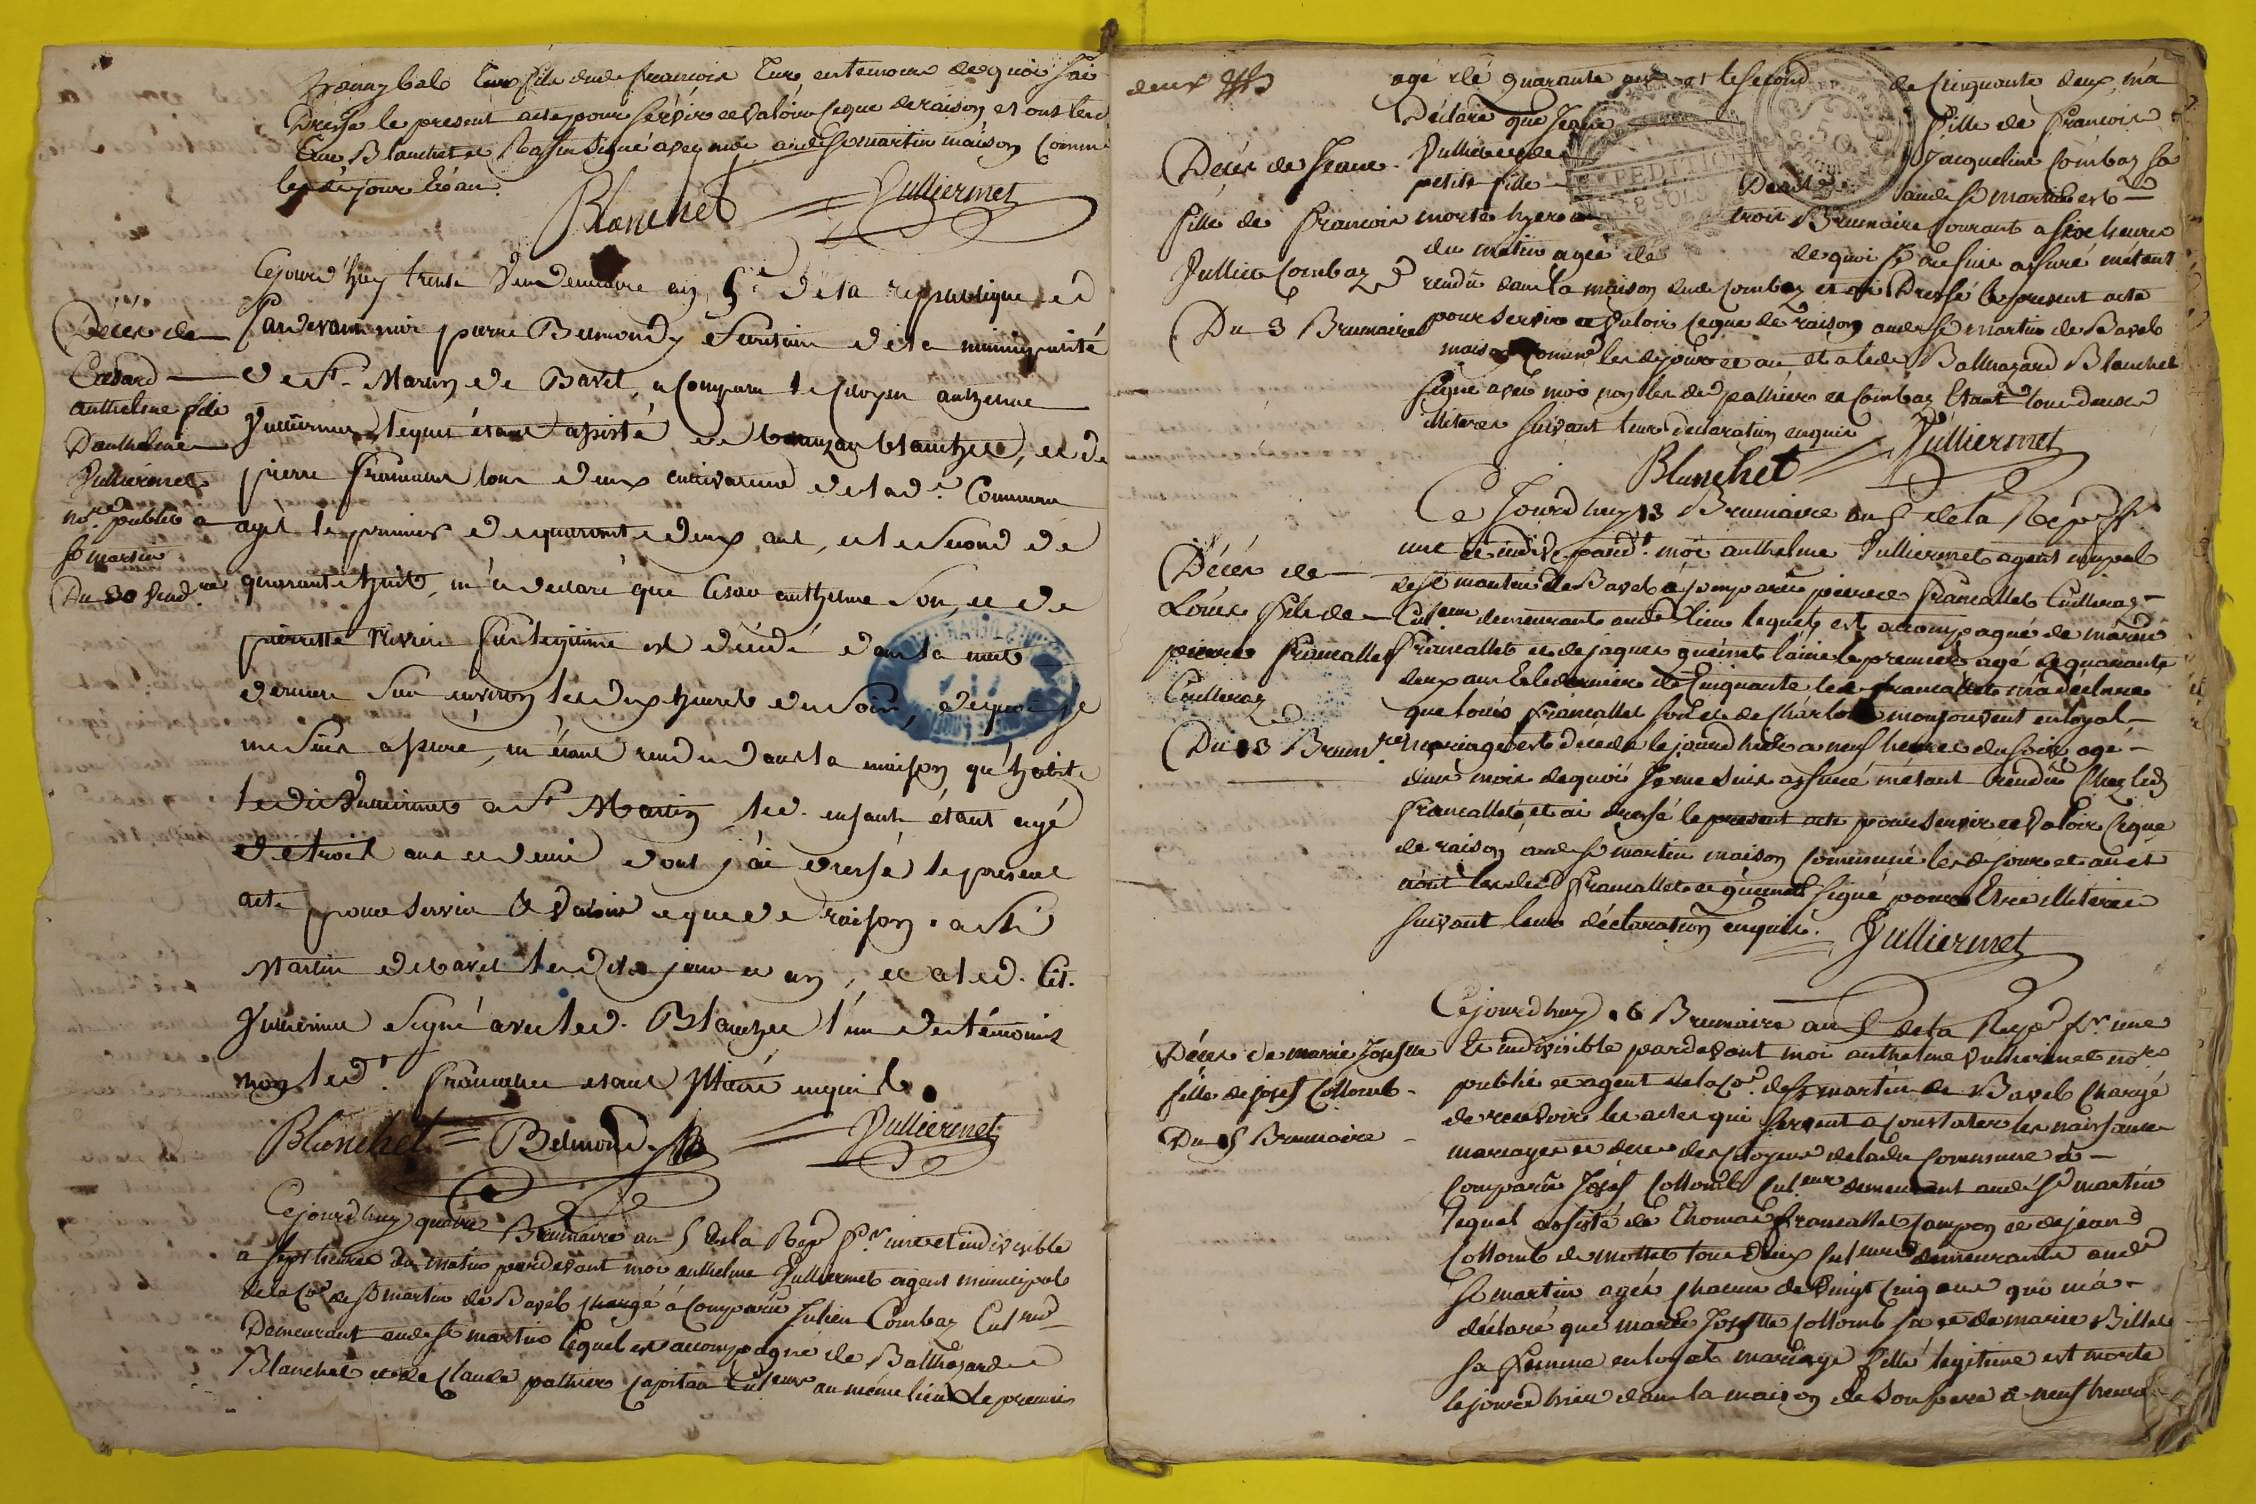 dud françois Ture en temoin de quoi j'ai
Dressé le present acte pour servir et valoir ceque de raison, et ont led
Blanchet et signé avec moi aud St martin maison comm
les dt jour et an.
Blanchet Vulliermet
Cejourd'huy trente Vendemiaire an 5e de la republique
pardevant moi pierre Belmond secretaire de la municipalité
Décés de
Cesard
anthelme fils
Danthelme
Vulliermet
nore public a
St martin
Du 30 Vendre
de St Martin de Bavel, a comparu le citoyen anthelme
Vulliermet lequel étant assisté de Baltazar blanchet, et de
pierre francallet tous deux cultivateurs de lad. Commune
agés le premier de quarante deux ans, et le second de
quarante huit, m'a declaré que Cesar anthelme son, et de
pierrette fils legitime est décédé dans la nuit
derniere sur environ les dix heures du soir, dequoi je
me suis assuré, m'étant rendu dans la maison qu'habite
ledit Vulliermet a St Martin, led. enfant étant agé
de trois ans et demi dont j'ai dressé le present
acte pour servir & valoir ceque de raison. a St
Martin de bavel lesdits jour et an, et a led. Cit.
Vulliermet signé avec led. Blanchet l'un des témoins
non led. francallet étant illitéré enquis.
Blanchet Belmond Vulliermet
Cejourd'huy quatre Brumaire an 5 de la Rep fse une et indivisible
a sept heures du matin pardevant moi anthelme Vulliermet agent municipal
de la Co de St martin de Bavel chargé a comparu Julien Combaz Cult
Demeurant aud St martin lequel est accompagné de Balthazard
Blanchet et de Claude pathier capitan Culteurs au même lieu le premier
deux
agé de quarante ans et le second de cinquante deux, m'a
Déclaré que Jeane fille de francois
Décés de Jeane
fille de francois
Jullien Combaz
Du 3 Brumaire
Jacqueline Combaz sa
petite fille aud St martin est
EXPEDITION
50
morte hyere trois Brumaire courant a six heures
du matin agée de de quoi je me suis assuré métant
rendu dans la maison dud Combaz et ai Dressé le present acte
pour servir et valoir ceque de raison aud St martin de Bavel
maison commne les d jour et an, et a led Balthazard Blanchet
signé avec moi non les d pathier et Combaz étant tous deux
illiteres suivant leur declaration enquis
Blanchet Vulliermet
Ce Jourd'huy 13 Brumaire an 5 de la Rep f
une et indiv pardt moi anthelme Vulliermet agent mupal
Décés de
Louis fils de
pierre francallet
Cuilleraz
Du 13 Brumre
de St martin de Bavel a comparu pierre francallet Cuilleraz
Culteur demeurant aud lieu lequel est accompagné de
francallet et de jaques gueinet lainé le premier agé de quarante
deux ans et le dernier de cinquante led francallet m'a déclaré
que louis francallet son et de Charlotte monjouvent en loyal
mariage est decedé le jourd'hier a neuf heures du soir agé
d'un mois de quoi je me suis assuré métant rendu chez led
francallet et ai dressé le present acte pour servir et valoir ceque
de raison aud St martin maison commune les d jour et an et
n'ont lesdt francallet et gueinet signé pour etre illiteres
suivant leur déclaration enquis.
Vulliermet
Cejourd'huy 6 Brumaire an 5 de la Rep fse une
Décés de marie Josette
fille de josef Collomb
Du 5 Brumaire
Et indivisible pardevant moi anthelme Vulliermet nore
public et agent de la Co de St martin de Bavel chargé
de recevoir les actes qui servent a constater les naissances
mariages et deces des citoyens de ladt commune a
comparu Josef Collomb Culteur demeurant aud St martin
lequel assisté de Thomas francallet sampon et de jean
Collomb de mollet tous deux Culteurs demeurants aud
St martin agés chacun de vingt cinq ans qui m'a
déclaré que marie Josette Collomb sa et de marie Billet
sa femme en loyal mariage fille legitime est morte
le jourd'hier dans la maison de son pere a neuf heures